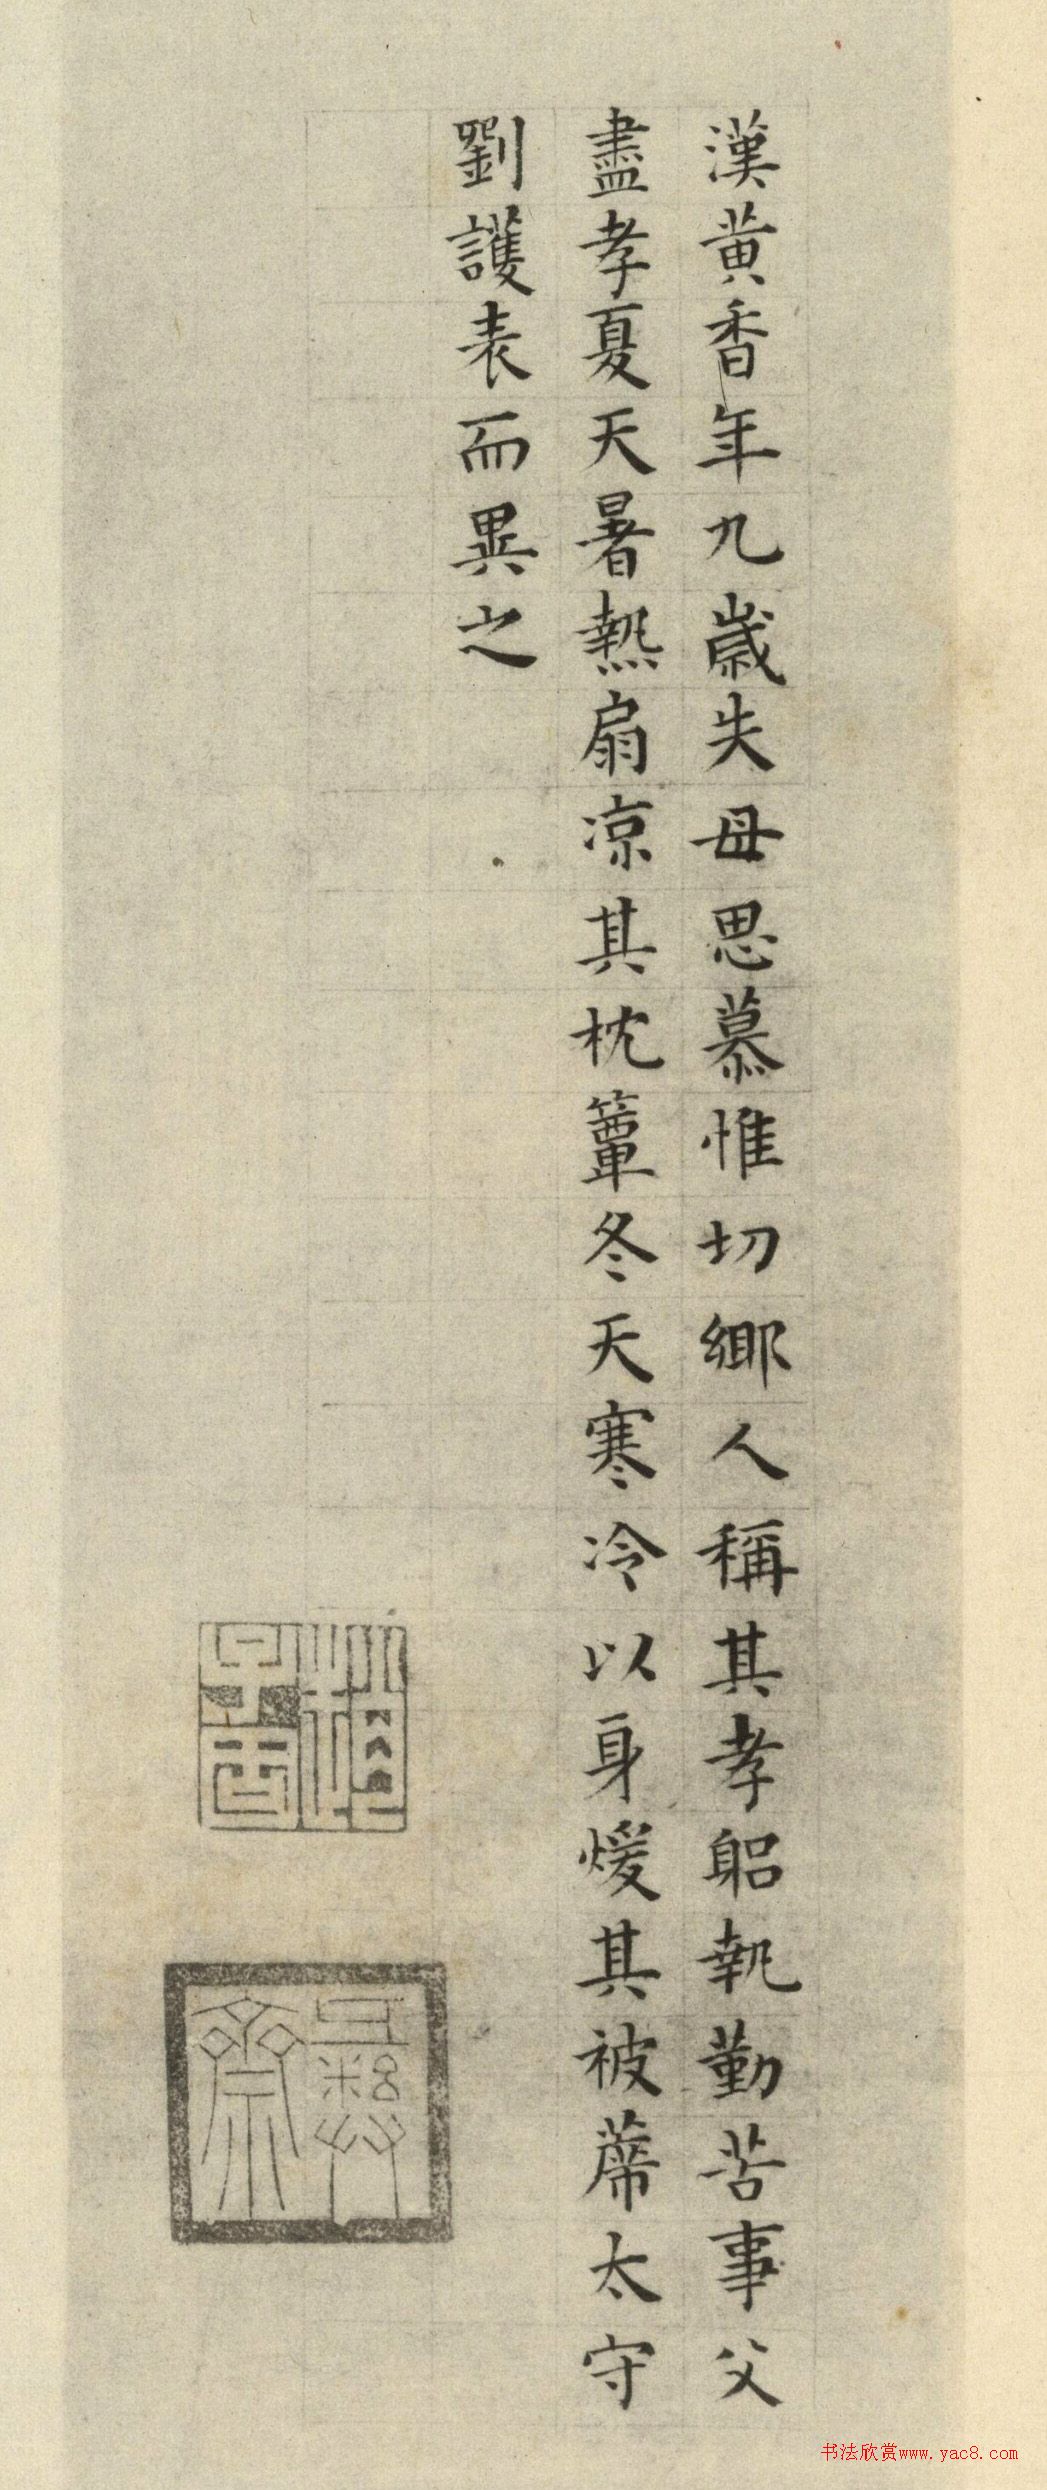 漢黄香年九歲失母思慕惟切鄉人稱其孝躬執勤苦事父
盡孝夏天暑熱扇凉其枕簟冬天寒冷以身煖其被蓆太守
劉護表而異之
书法欣赏www.yac8.com